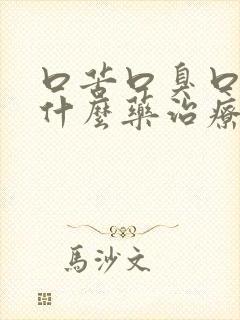 口苦口臭口
什麼藥治療
馬沙文